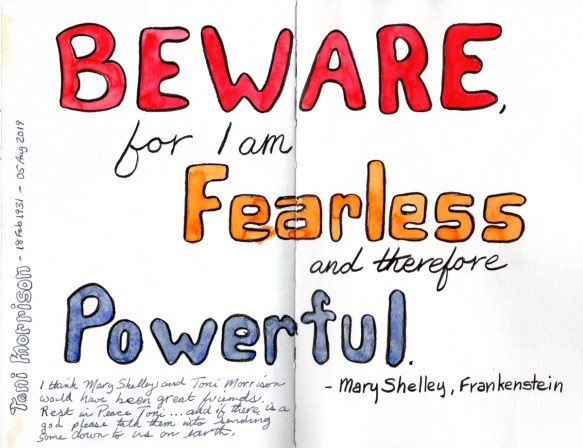 BEWARE,
for I am
Fearless
and therefore
Powerful.
- Mary Shelley, Frankenstein
Toni Morrison - 18 Feb 1931 - 05 Aug 2019
I think Mary Shelley and Toni Morrison
would have been great friends.
Rest in Peace Toni... and if there is a
god please talk them into sending
some down to us on earth.